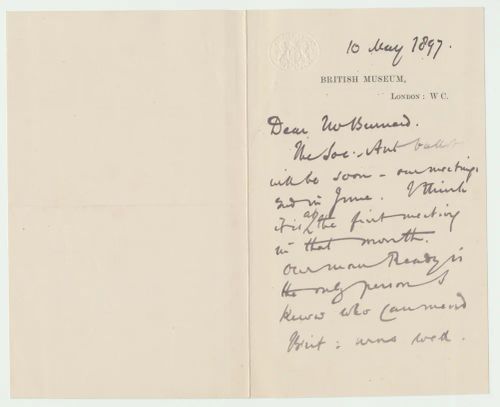 10 May 1897.
BRITISH MUSEUM,
LONDON: W C.
Dear Mr
The Soc. Ant ballot
will be soon – our meetings
end in June. I think
it is at the first meeting
in that month.
Our man Ready is
the only person I
know who can mend
Brit: urns well.